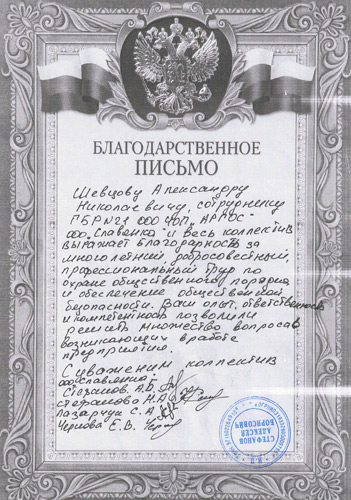 БЛАГОДАРСТВЕННОЕ
ПИСЬМО
Шевцову Александру
Николаевичу, сотруднику
ГБР№21 ООО ЧОП "АРГОС"
ООО "Славенка" и весь коллектив
выражает благодарность за
многолетний, добросовестный,
профессиональный труд по
охране общественного порядка
и обеспечение общественной
безопасности. Ваш опыт, ответственность
и компетентность позволили
решить множество вопросов
возникающих в работе
предприятия.
С уважением коллектив
ООО "Славенка"
Степанов. А.Б.
Степанова Н.А.
Лазарчук С. А.
Чернова Е. В.
СТЕПАНОВ
АЛЕКСЕЙ
БОРИСОВИЧ